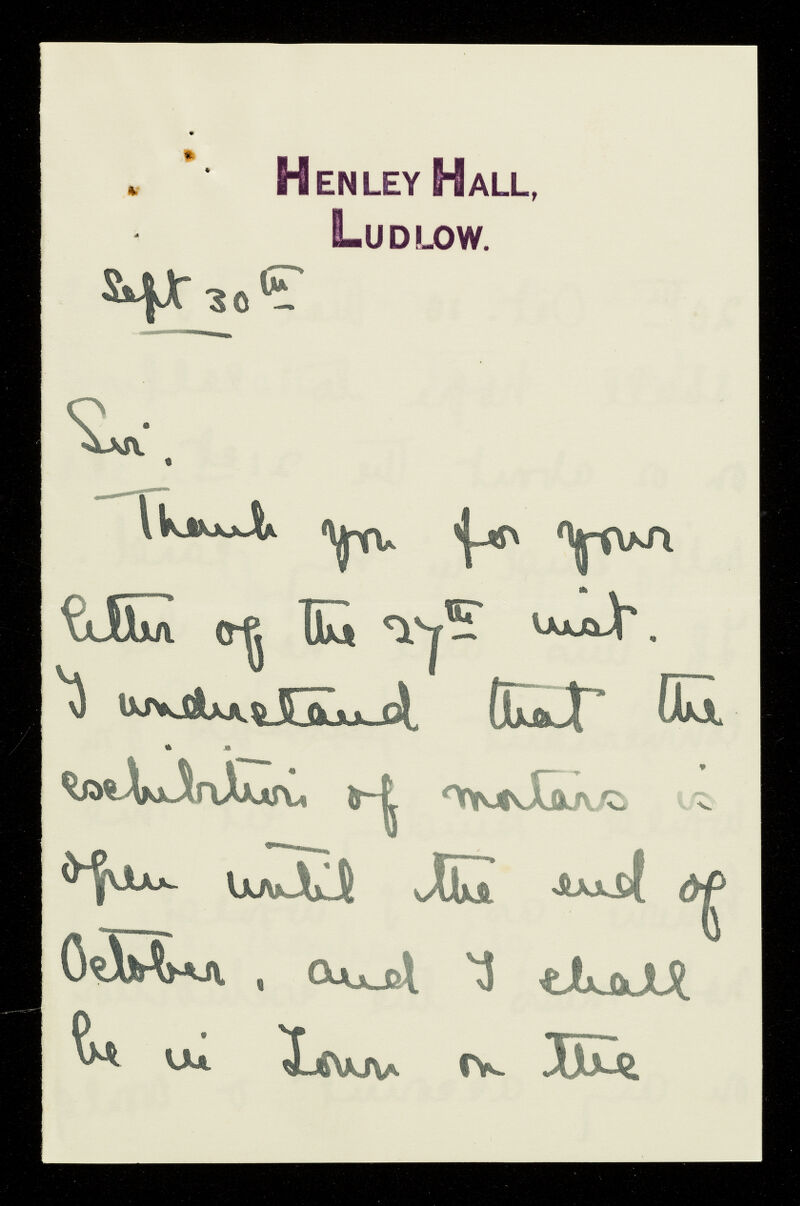 HENLEY HALL,
LUDLOW.
Sept 30th
Sir.
Thank you for your
letter of the 27th inst.
I understand that the
exhibition of mortars is
open until the end of
October, and I shall
be in Town on the